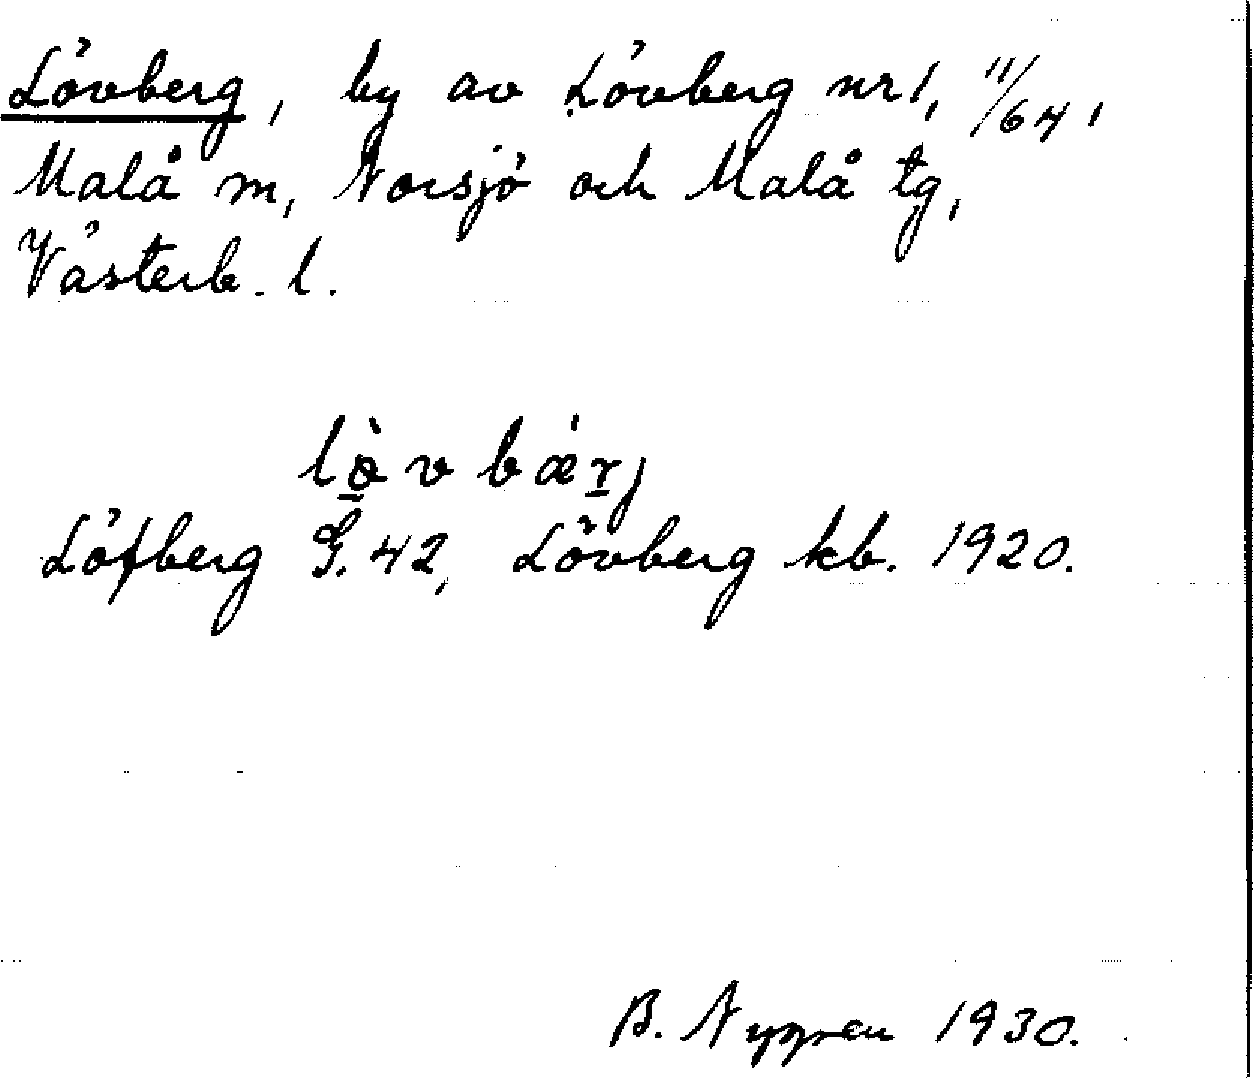 Lövberg, by av Lövberg nr 1, 11/64,
Malå m, Norsjö och Malå tg,
Västerb. l.
lö̀vbǽrj
Löfberg G. 42, Lövberg kb. 1920.
B. Nygren 1930.